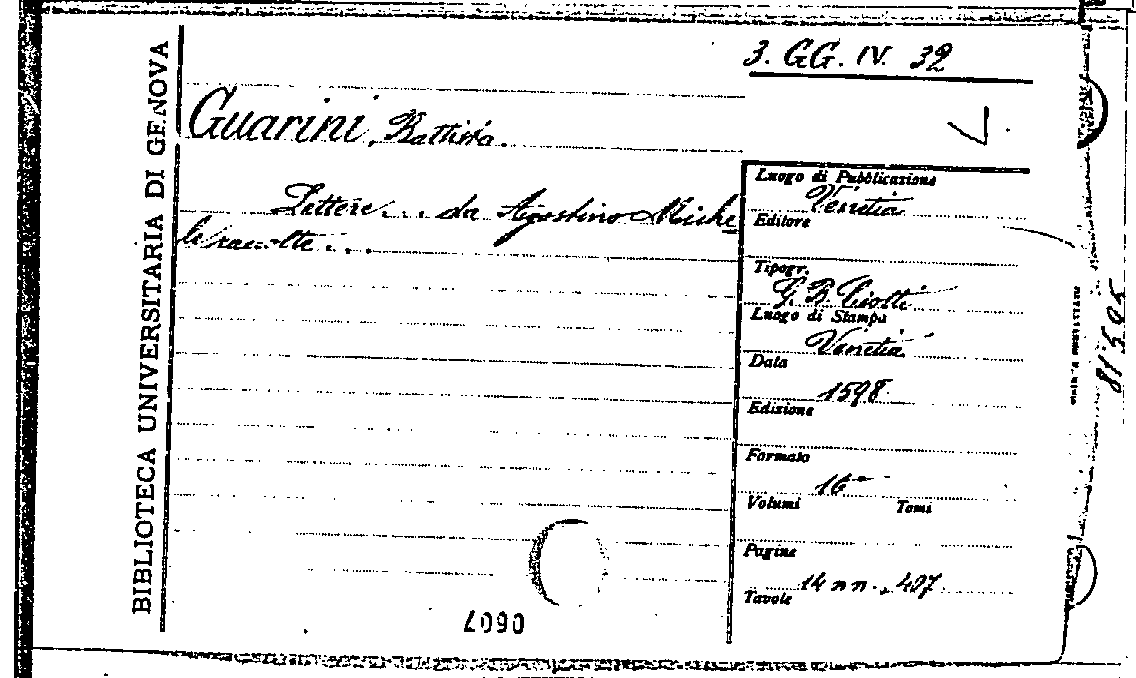 BIBLIOTECA UNIVERSITARIA DI GENOVA
3. GG. IV. 32
Guarini, Battista.
Lettere... da Agostino Miche
le raccolte...
Luogo di Pubblicazione
Venetia
Editore
Tipogr.
G. B. Ciotti
Luogo di Stampa
Venetia
Data
1598
Edizione
Formato
16
Volumi Tomi
Pagine
14 nn., 407
Tavole
0607